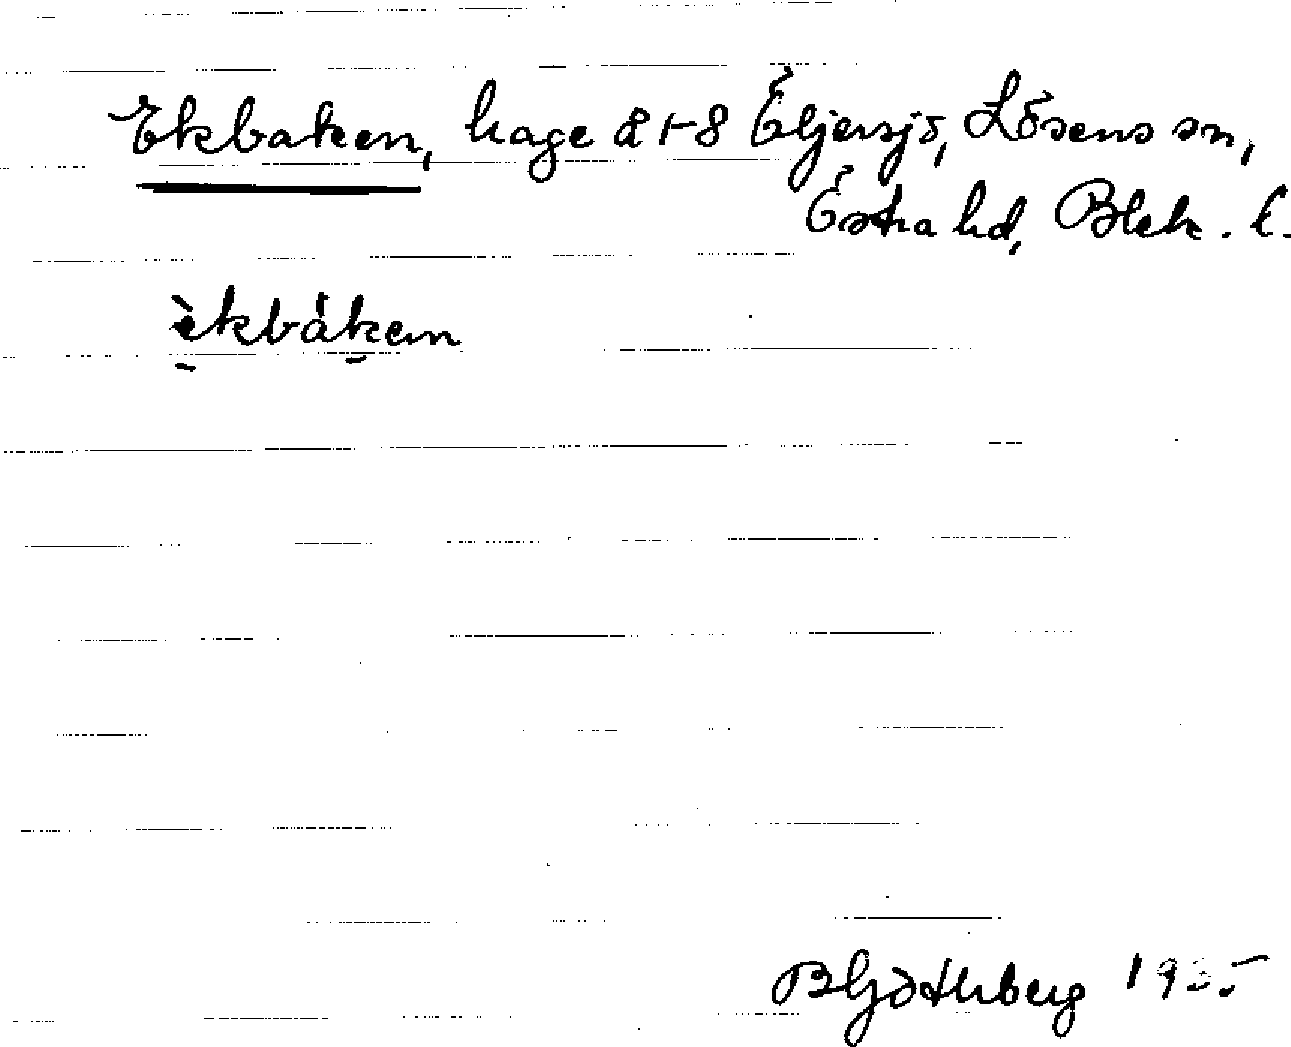 Ekbaken, hage å 1-8 Öljersjö, Lösens sn,
Östra hd, Blek. l.
èkbáken
B Göthberg 1935